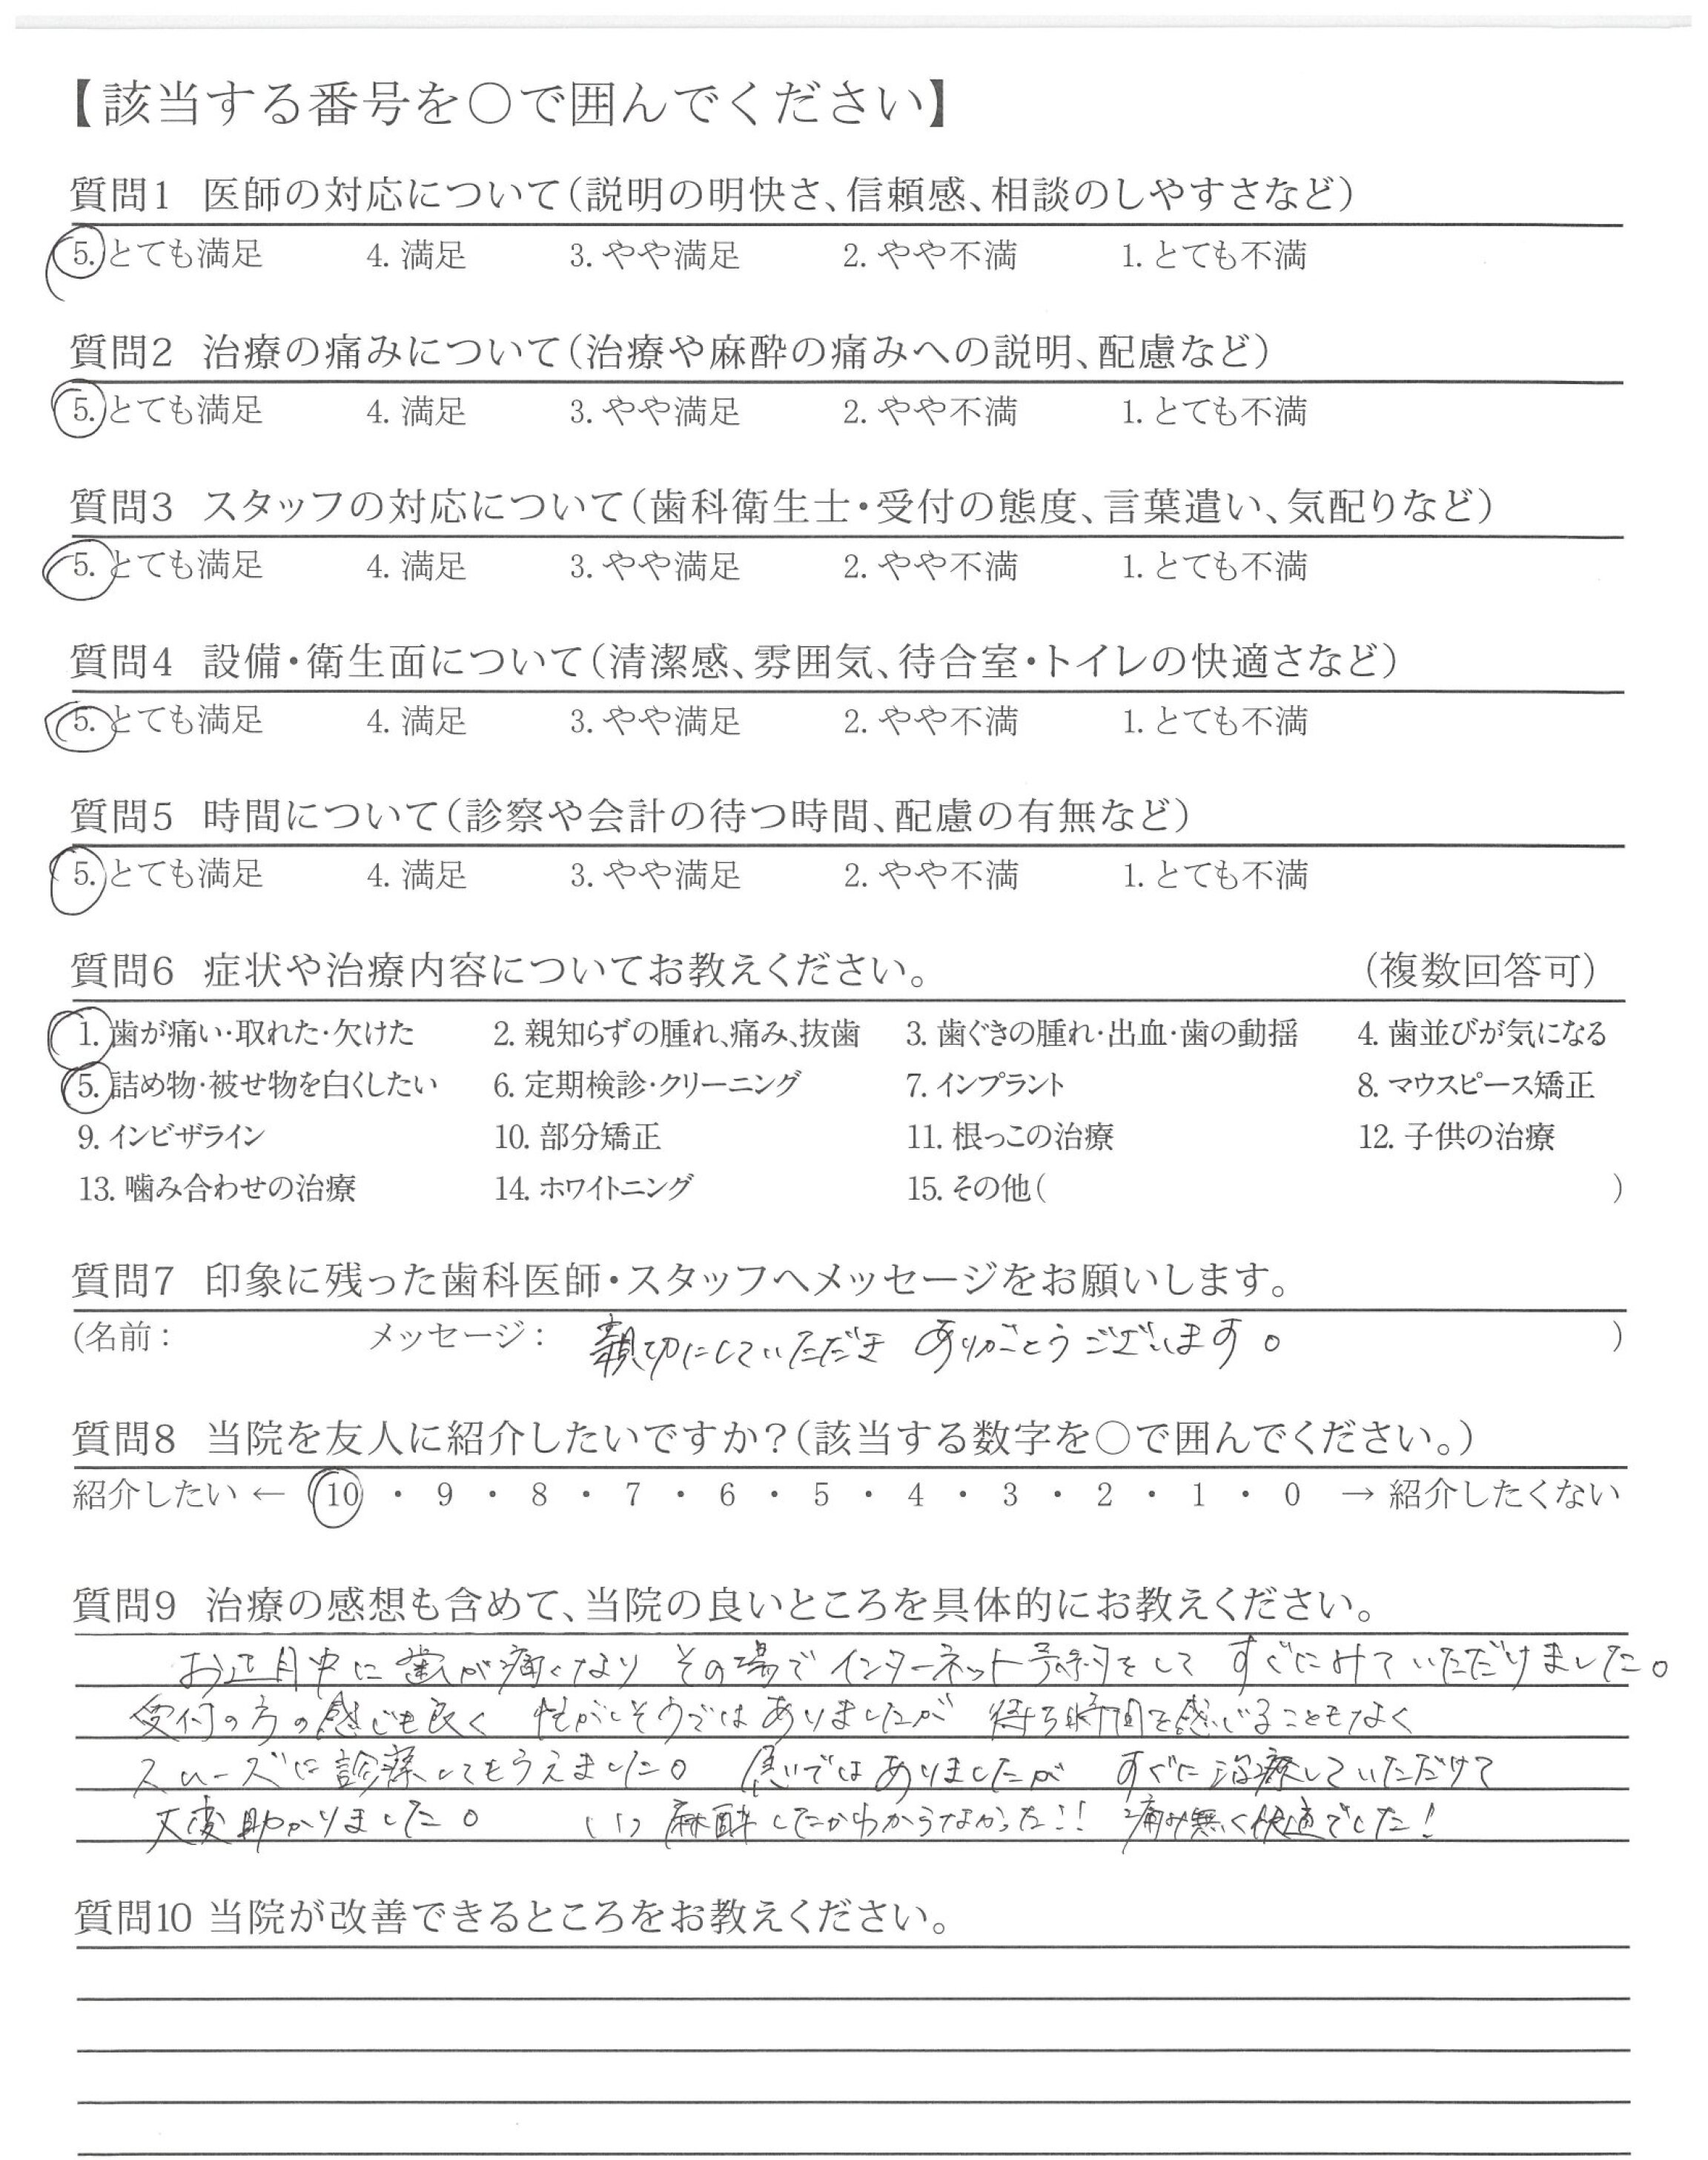 【該当する番号を○で囲んでください】
質問1 医師の対応について(説明の明快さ、信頼感、相談のしやすさなど)
5. とても満足 4. 満足 3. やや満足 2. やや不満 1. とても不満
質問2 治療の痛みについて(治療や麻酔の痛みへの説明、配慮など)
5. とても満足 4. 満足 3. やや満足 2. やや不満 1. とても不満
質問3 スタッフの対応について(歯科衛生士・受付の態度、言葉遣い、気配りなど)
5. とても満足 4. 満足 3. やや満足 2. やや不満 1. とても不満
質問4 設備・衛生面について(清潔感、雰囲気、待合室・トイレの快適さなど)
5. とても満足 4. 満足 3. やや満足 2. やや不満 1. とても不満
質問5 時間について(診察や会計の待つ時間、配慮の有無など)
5. とても満足 4. 満足 3. やや満足 2. やや不満 1. とても不満
質問6 症状や治療内容についてお教えください。 (複数回答可)
1. 歯が痛い・取れた・欠けた 2. 親知らずの腫れ、痛み、抜歯 3. 歯ぐきの腫れ・出血・歯の動揺 4. 歯並びが気になる
5. 詰め物・被せ物を白くしたい 6. 定期検診・クリーニング 7. インプラント 8. マウスピース矯正
9. インビザライン 10. 部分矯正 11. 根っこの治療 12. 子供の治療
13. 噛み合わせの治療 14. ホワイトニング 15. その他( )
質問7 印象に残った歯科医師・スタッフへメッセージをお願いします。
(名前: メッセージ: 親切にしていただき ありがとうございます。 )
質問8 当院を友人に紹介したいですか?(該当する数字を○で囲んでください。)
紹介したい ← 10 ・ 9 ・ 8 ・ 7 ・ 6 ・ 5 ・ 4 ・ 3 ・ 2 ・ 1 ・ 0 → 紹介したくない
質問9 治療の感想も含めて、当院の良いところを具体的にお教えください。
お正月中に歯が痛くなり その場でインターネット予約をして すぐにみていただけました。
受付の方の感じも良く 忙がしそうではありましたが 待ち時間を感じることもなく
スムーズに診察してもらえました。 急いではありましたが すぐに治療していただけて
大変助かりました。 いつ麻酔したかわからなかった!! 痛み無く快適でした!
質問10 当院が改善できるところをお教えください。